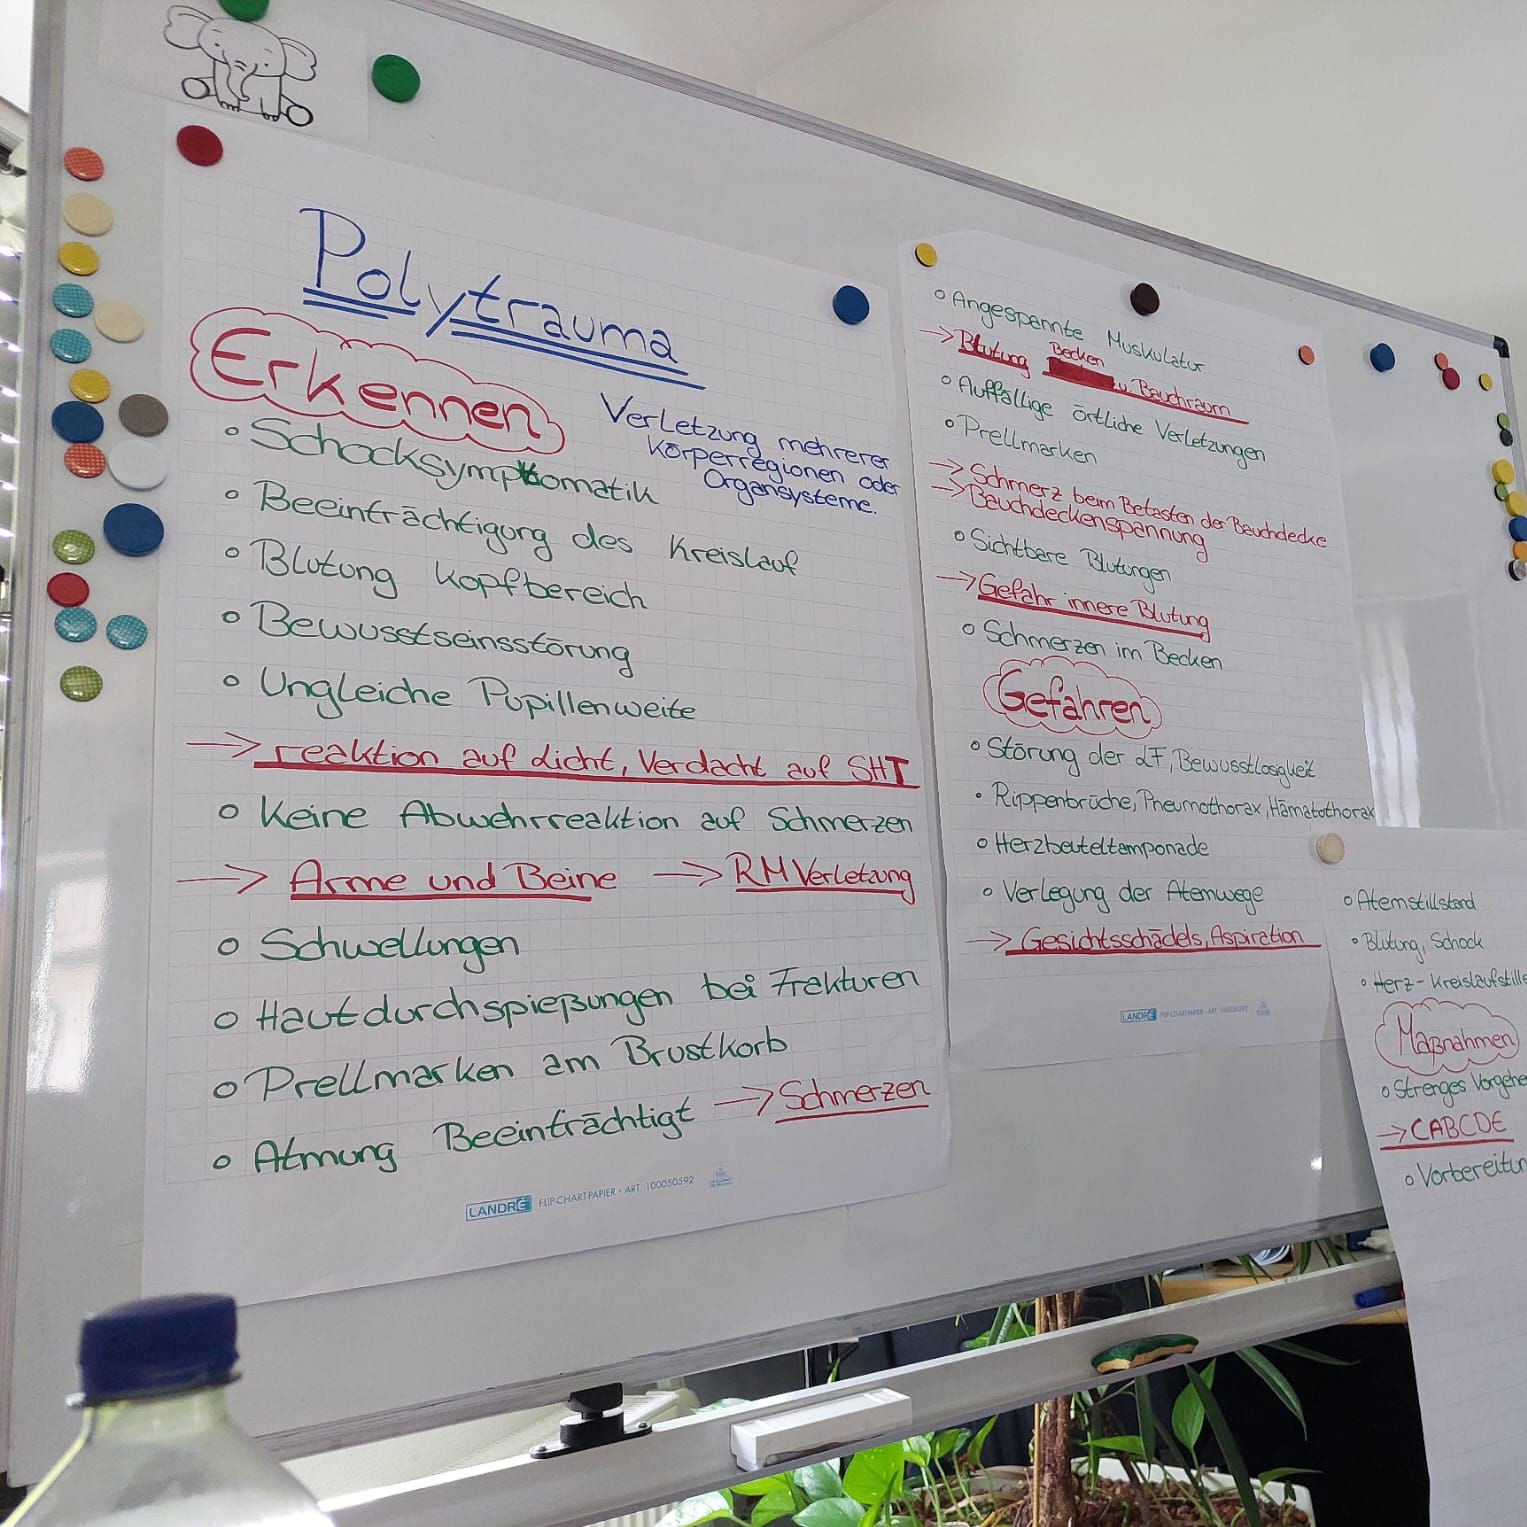 Polytrauma
Erkennen
Verletzung mehrerer
Körperregionen oder
Organsysteme.
o Schocksymptomatik
o Beeinträchtigung des Kreislauf
o Blutung Kopfbereich
o Bewusstseinsstörung
o Ungleiche Pupillenweite
→ reaktion auf Licht, Verdacht auf SHT
o Keine Abwehrreaktion auf Schmerzen
→ Arme und Beine → RM Verletzung
o Schwellungen
o Hautdurchspießungen bei Frakturen
o Prellmarken am Brustkorb
o Atmung Beeinträchtigt → Schmerzen
LANDRÉ FLIP-CHART-PAPIER • ART. 100050592
o Angespannte Muskulatur
→ Blutung Becken u. Bauchraum
o Auffällige örtliche Verletzungen
o Prellmarken
→ Schmerz beim Betasten der Bauchdecke
→ Bauchdeckenspannung
o Sichtbare Blutungen
→ Gefahr innere Blutung
o Schmerzen im Becken
Gefahren
o Störung der LF, Bewusstlosigkeit
• Rippenbrüche, Pneumothorax, Hämatothorax
o Herzbeuteltamponade
o Verlegung der Atemwege
→ Gesichtsschädels, Aspiration
LANDRÉ FLIP-CHART-PAPIER • ART. 100050592
o Atemstillstand
• Blutung, Schock
o Herz-Kreislaufstills
Maßnahmen
o Strenges Vorgehe
→ CABCDE
o Vorbereitun